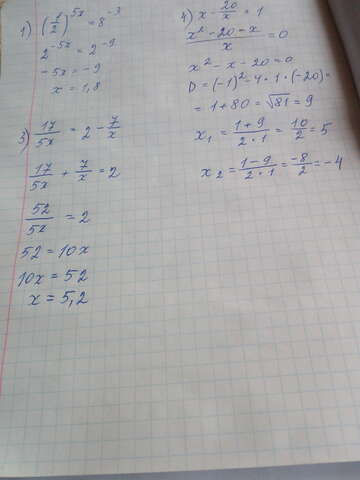 1) (1/2)^5x = 8^-3
2^-5x = 2^-9
-5x = -9
x = 1,8
3) 17/5x = 2 - 7/x
17/5x + 7/x = 2
52/5x = 2
52 = 10x
10x = 52
x = 5,2
4) x - 20/x = 1
(x² - 20 - x)/x = 0
x² - x - 20 = 0
D = (-1)² - 4 · 1 · (-20) =
= 1 + 80 = √81 = 9
x₁ = (1 + 9)/(2 · 1) = 10/2 = 5
x₂ = (1 - 9)/(2 · 1) = -8/2 = -4